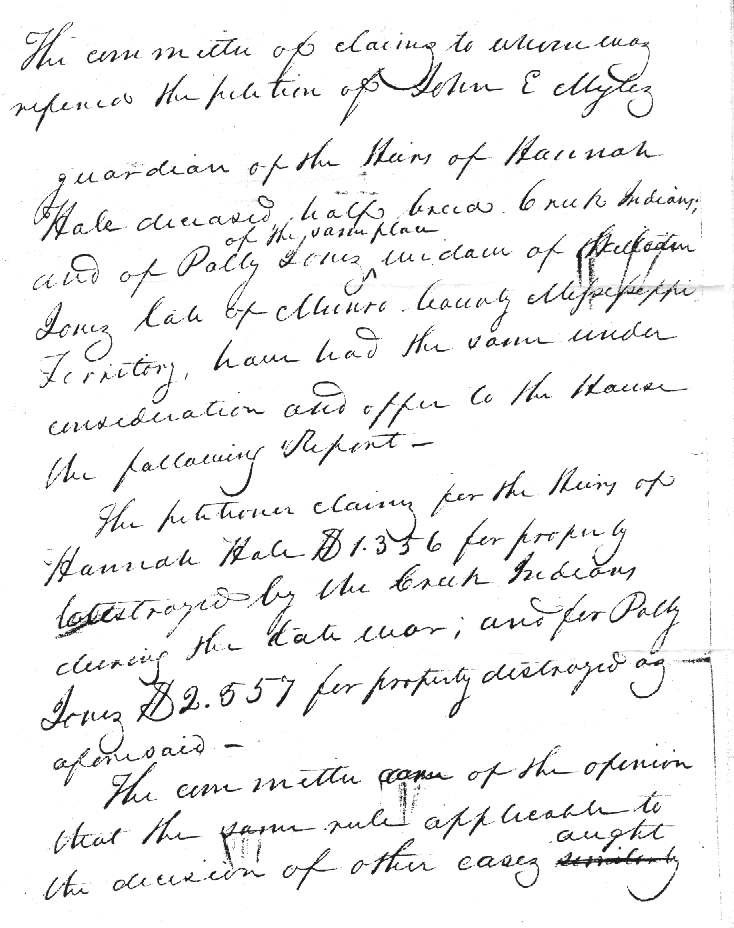 The committee of claims to whom was
refered the petition of John E Myles
guardian of the Heirs of Hannah
Hale deceased half breed Creek Indians;
of the same place
and of Polly Jones widow of
Jones late of Munro County Mississeppi
Territory, have had the same under
consideration and offer to the House
the following Report —
The petitioner claims for the Heirs of
Hannah Hale $1.356 for property
destroyed by the Creek Indians
during the late war; and for Polly
Jones $2.557 for property distroyed as
aforesaid —
The committee are of the opinion
that the same rule applicable to
aught
the decision of other cases